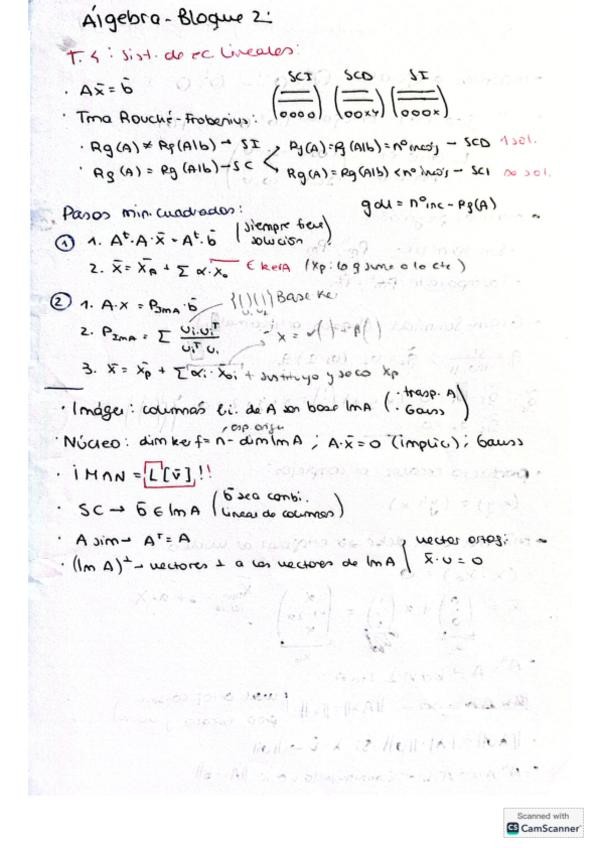 Álgebra - Bloque 2:
T.4: Sist. de ec lineales:
· Ax̄ = b̄
SCI SCD SI
(0 0 0 0) (0 0 x y) (0 0 0 x)
· Tma Rouché-Frobenius:
· Rg(A) ≠ Rg(A|b) → SI
Rg(A) = Rg(A|b) = nº incóg → SCD 1 sol.
· Rg(A) = Rg(A|b) → SC
Rg(A) = Rg(A|b) < nº incóg → SCI ∞ sol.
gdl = nº inc - Rg(A)
Pasos min. cuadrados:
① 1. Aᵗ·A·x̄ = Aᵗ·b̄ (siempre tiene solución)
2. x̄ = x̄ₚ + Σ α·x₀ ∈ kerA (xp: lo q sumo a la cte)
② 1. A·x = P_ImA·b̄ {( )( )} Base
u₁ u₂
2. P_ImA = Σ uᵢ·uᵢᵀ / uᵢᵀ·uᵢ
3. x̄ = x̄p + Σαᵢ·x̄₀ᵢ + sustituyo y saco xp
· Imágen: columnas l.i. de A son base ImA (· trasp. A · Gauss)
esp. orign
· Núcleo: dim ker f = n - dim ImA ; A·x̄ = 0 (implíc) ; Gauss
· IM ∩ N = L[v̄] !!
· SC → b̄ ∈ ImA (b̄ sea combi. lineal de columnas)
· A sim → Aᵀ = A
· (Im A)^⊥ → vectores ⊥ a los vectores de ImA { vector ortog:
x̄·u = 0
Scanned with
CS CamScanner